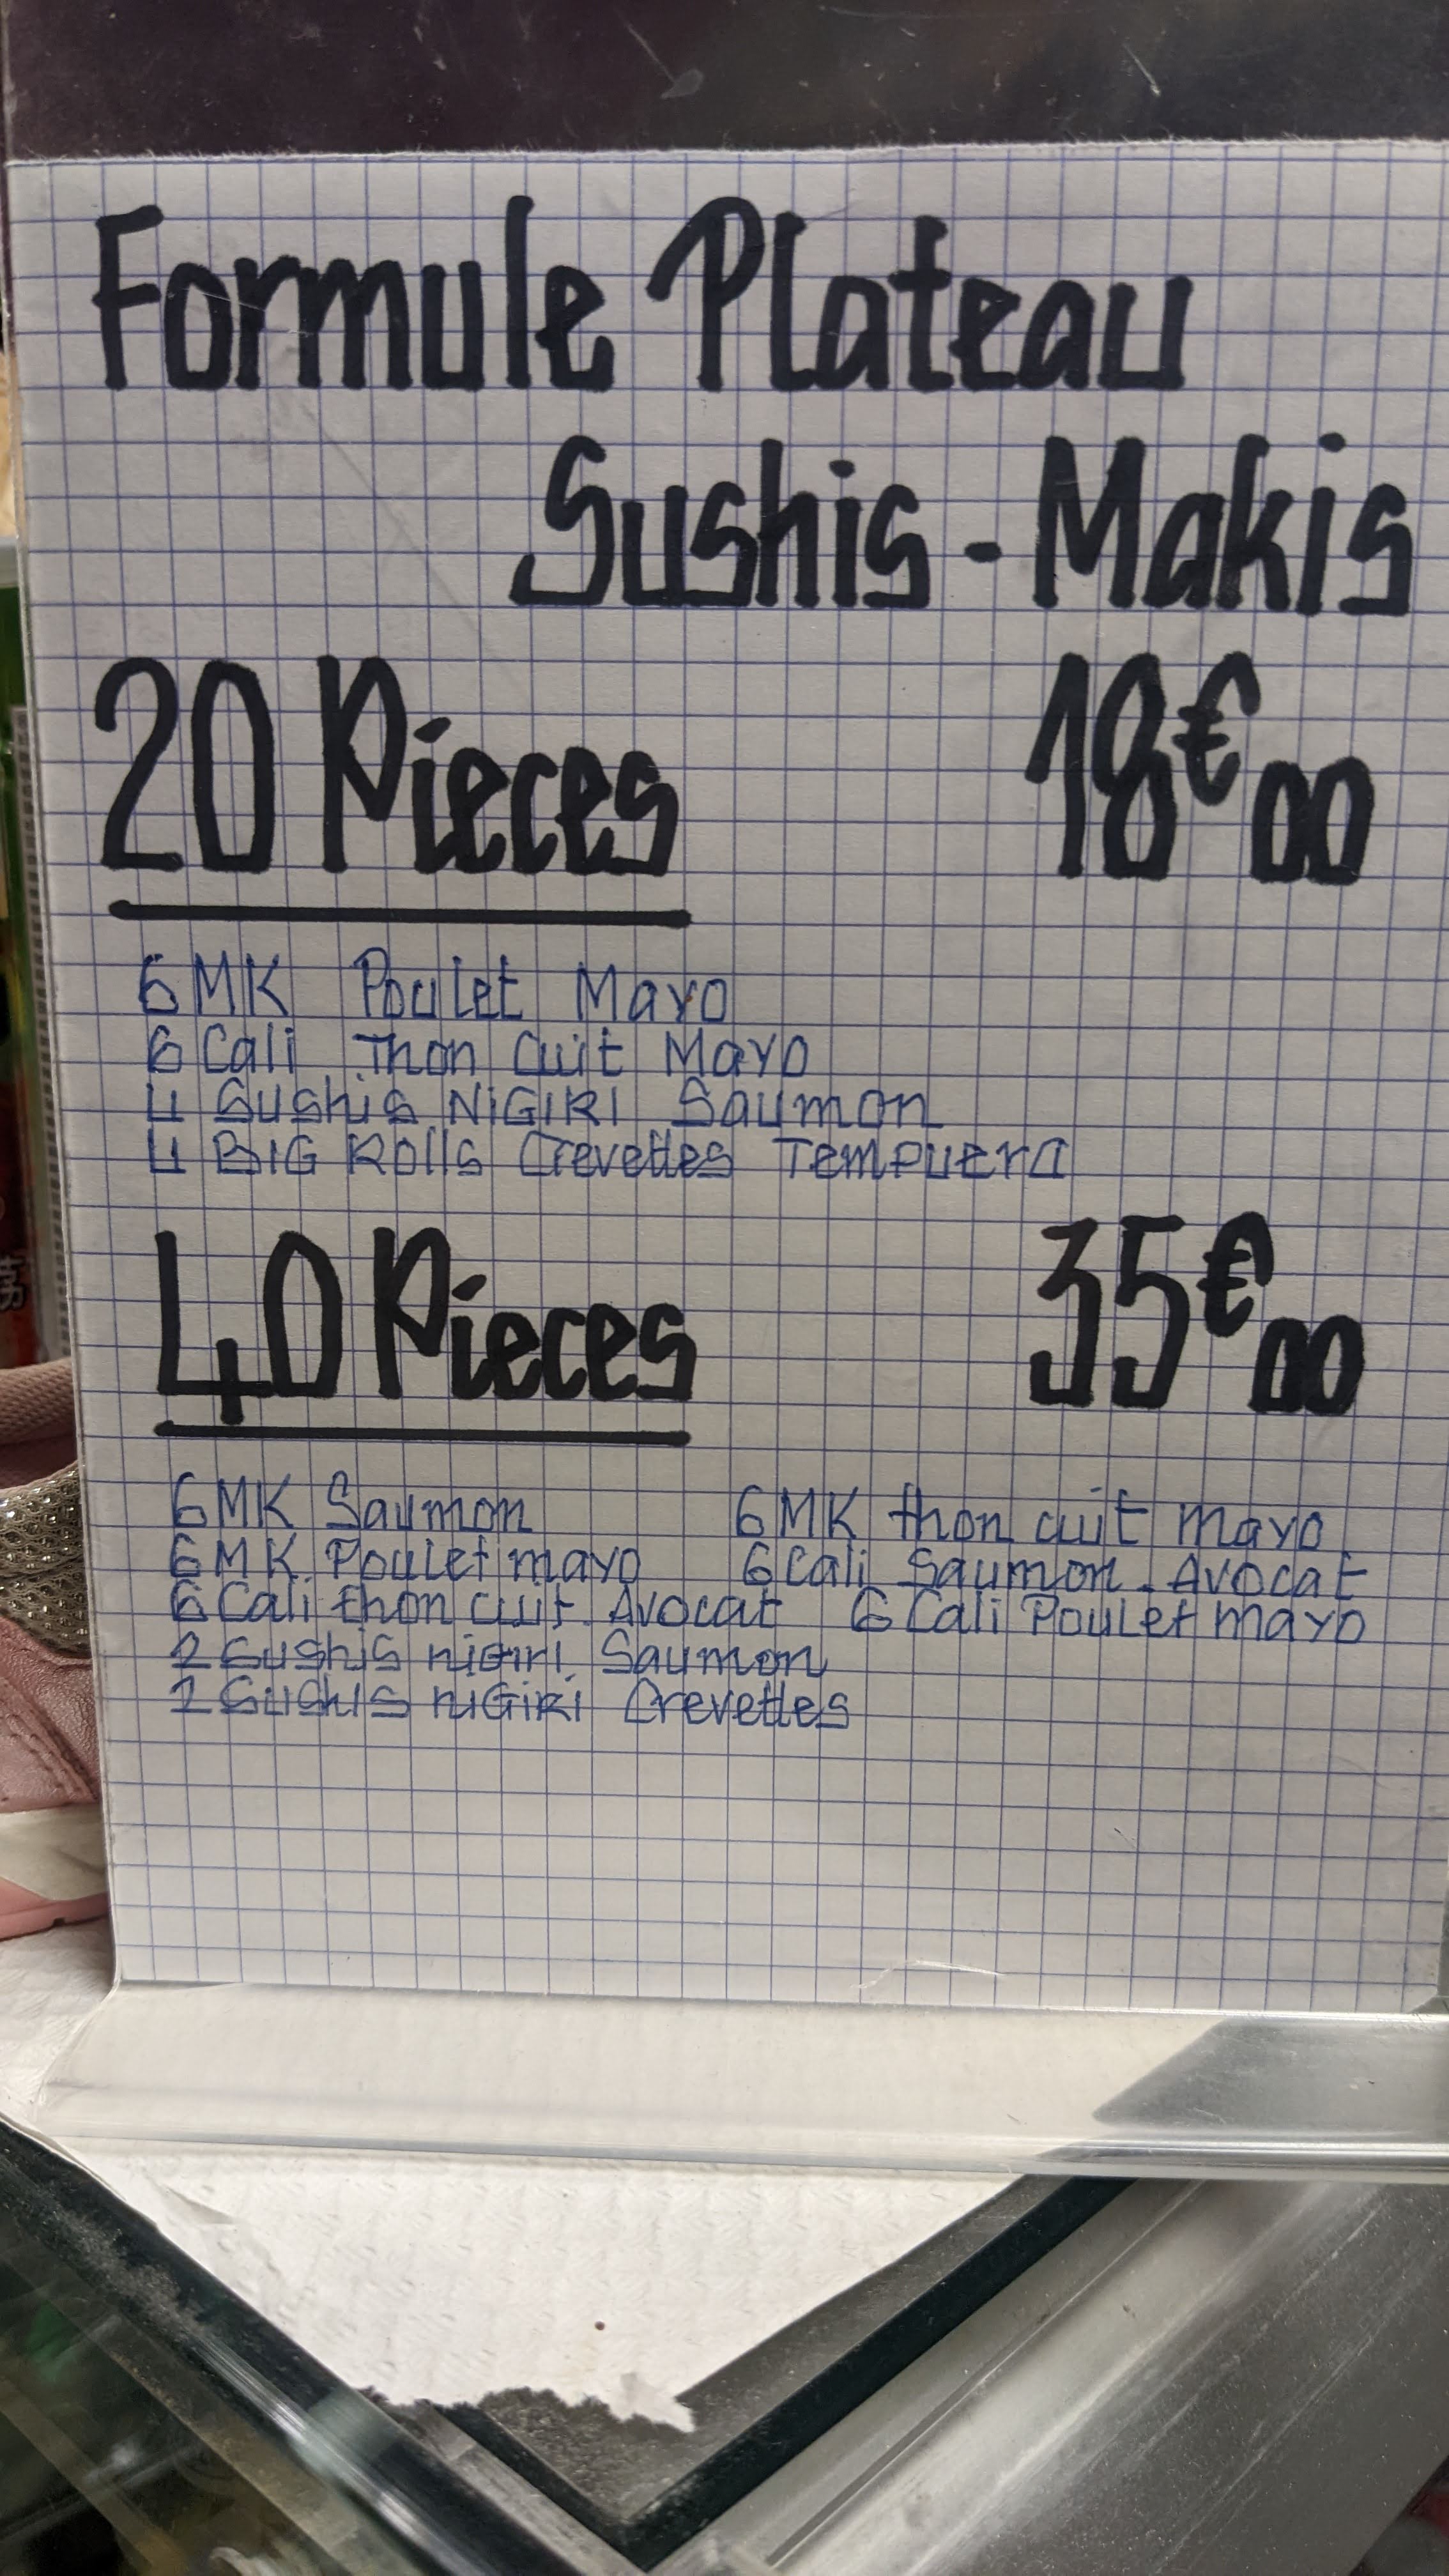 Formule Plateau
Sushis - Makis
20 Pieces 18€00
6 MK Poulet Mayo
6 Cali Thon Cuit Mayo
4 Sushis NiGIRI Saumon
4 BIG Rolls Crevettes Tempuera
40 Pieces 35€00
6 MK Saumon 6 MK thon cuit mayo
6 MK Poulet mayo 6 Cali Saumon - Avocat
6 Cali thon cuit. Avocat 6 Cali Poulet mayo
2 Sushis niGiri Saumon
2 Sushis niGiRi Crevettes